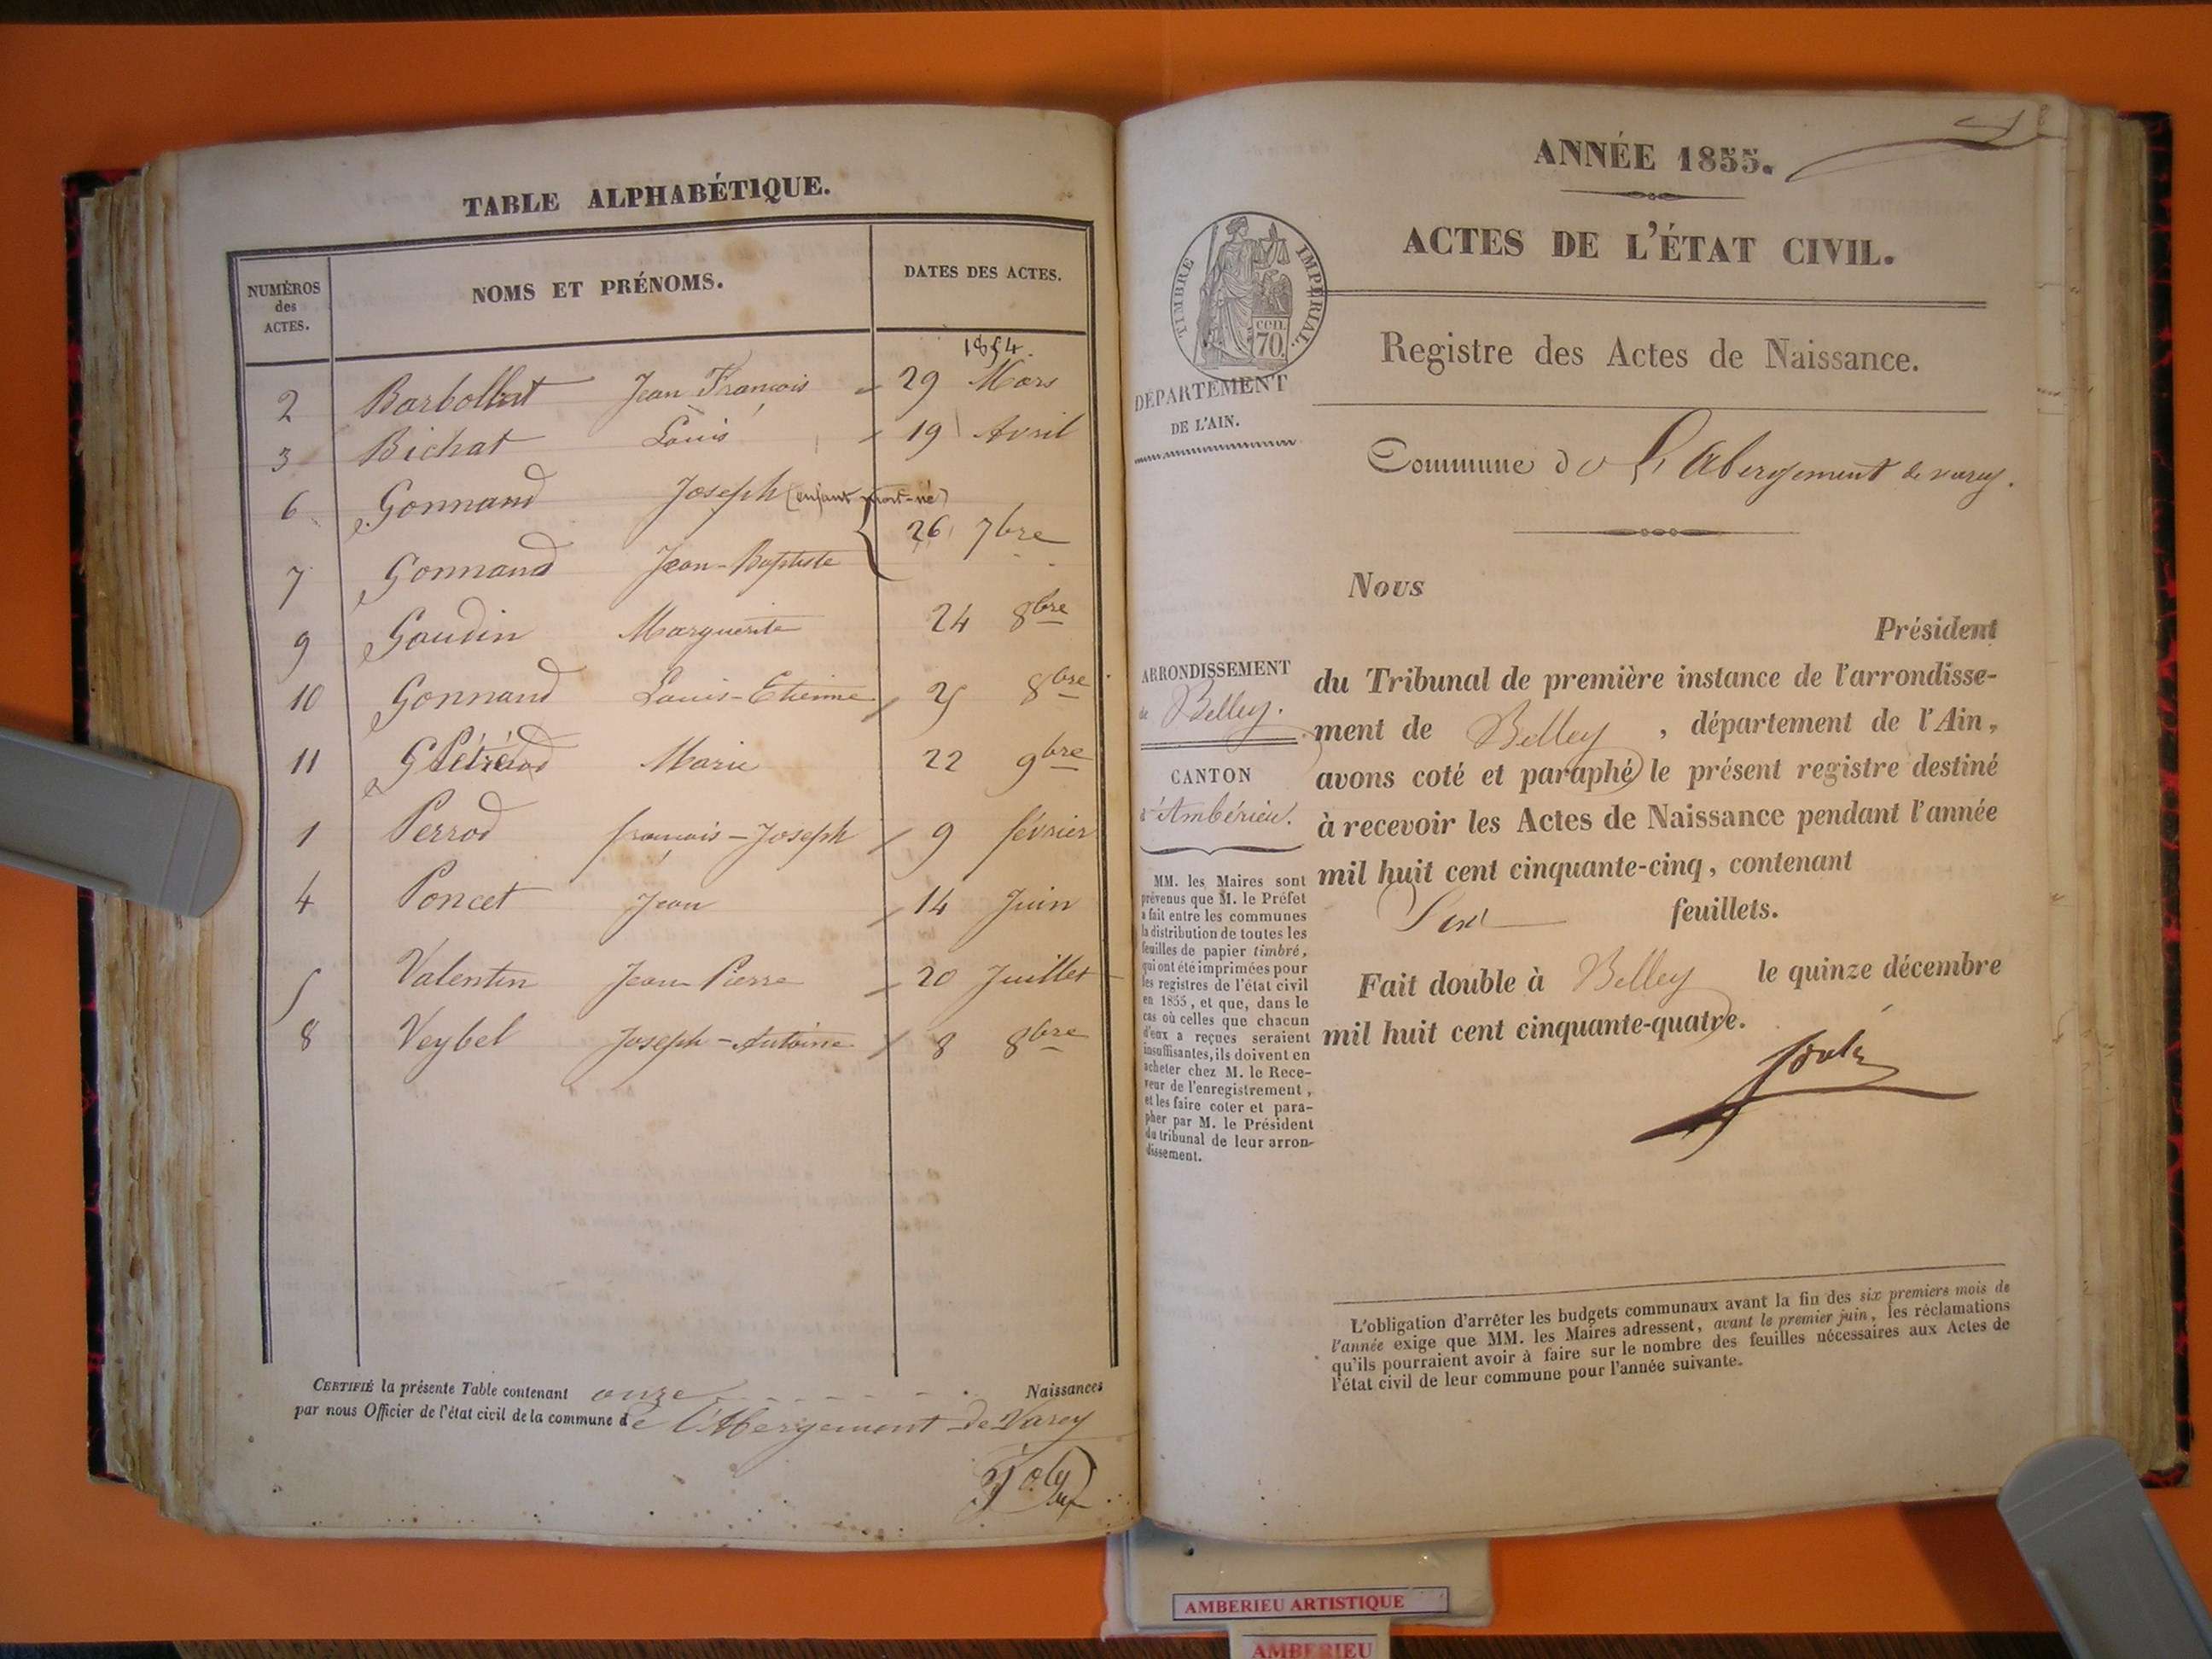 TABLE ALPHABÉTIQUE.
NUMÉROS des ACTES. NOMS ET PRÉNOMS. DATES DES ACTES.
1854.
2 Barbollat Jean François 29 Mars
3 Bichat Louis 19 Avril
6 Gonnand Joseph (enfant mort-né)
26 7bre
7 Gonnand Jean-Baptiste
9 Gaudin Marguerite 24 8bre
10 Gonnand Louis-Etienne 25 8bre
11 Marie 22 9bre
1 Perrod françois-Joseph 9 février
4 Poncet Jean 14 Juin
5 Valentin Jean Pierre 20 Juillet
8 Veybel Joseph-Antoine 8 8bre
CERTIFIÉ la présente Table contenant onze Naissances
par nous Officier de l'état civil de la commune de l'Abergement de Varey
ANNÉE 1855.
ACTES DE L'ÉTAT CIVIL.
TIMBRE IMPÉRIAL.
cen.
70.
DÉPARTEMENT
DE L'AIN.
Registre des Actes de Naissance.
Commune de L'Abergement de varey.
Nous
Président
ARRONDISSEMENT
de Belley.
CANTON
d'Ambérieu.
du Tribunal de première instance de l'arrondisse-
ment de Belley, département de l'Ain,
avons coté et paraphé le présent registre destiné
à recevoir les Actes de Naissance pendant l'année
mil huit cent cinquante-cinq, contenant
Six feuillets.
Fait double à Belley le quinze décembre
mil huit cent cinquante-quatre.
MM. les Maires sont
prévenus que M. le Préfet
a fait entre les communes
la distribution de toutes les
feuilles de papier timbré,
qui ont été imprimées pour
les registres de l'état civil
en 1855, et que, dans le
cas où celles que chacun
d'eux a reçues seraient
insuffisantes, ils doivent en
acheter chez M. le Rece-
veur de l'enregistrement,
et les faire coter et para-
pher par M. le Président
du tribunal de leur arron-
dissement.
L'obligation d'arrêter les budgets communaux avant la fin des six premiers mois de
l'année exige que MM. les Maires adressent, avant le premier juin, les réclamations
qu'ils pourraient avoir à faire sur le nombre des feuilles nécessaires aux Actes de
l'état civil de leur commune pour l'année suivante.
AMBERIEU ARTISTIQUE
AMBERIEU